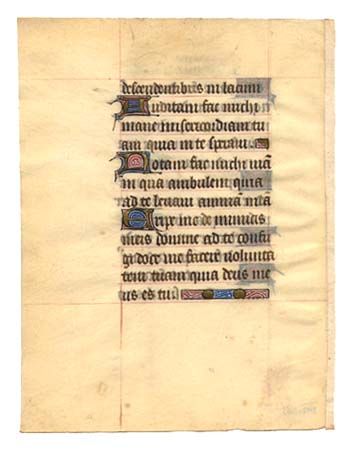 descendentibus in lacum
Auditam fac michi
mane misericordiam tu
am quia in te speravi
Notam fac michi viā
in qua ambulem quia
ad te levavi animā meā
Eripe me de inimicis
meis domine ad te confu
gi doce me facere volunta
tem tuam quia deus me
us es tu